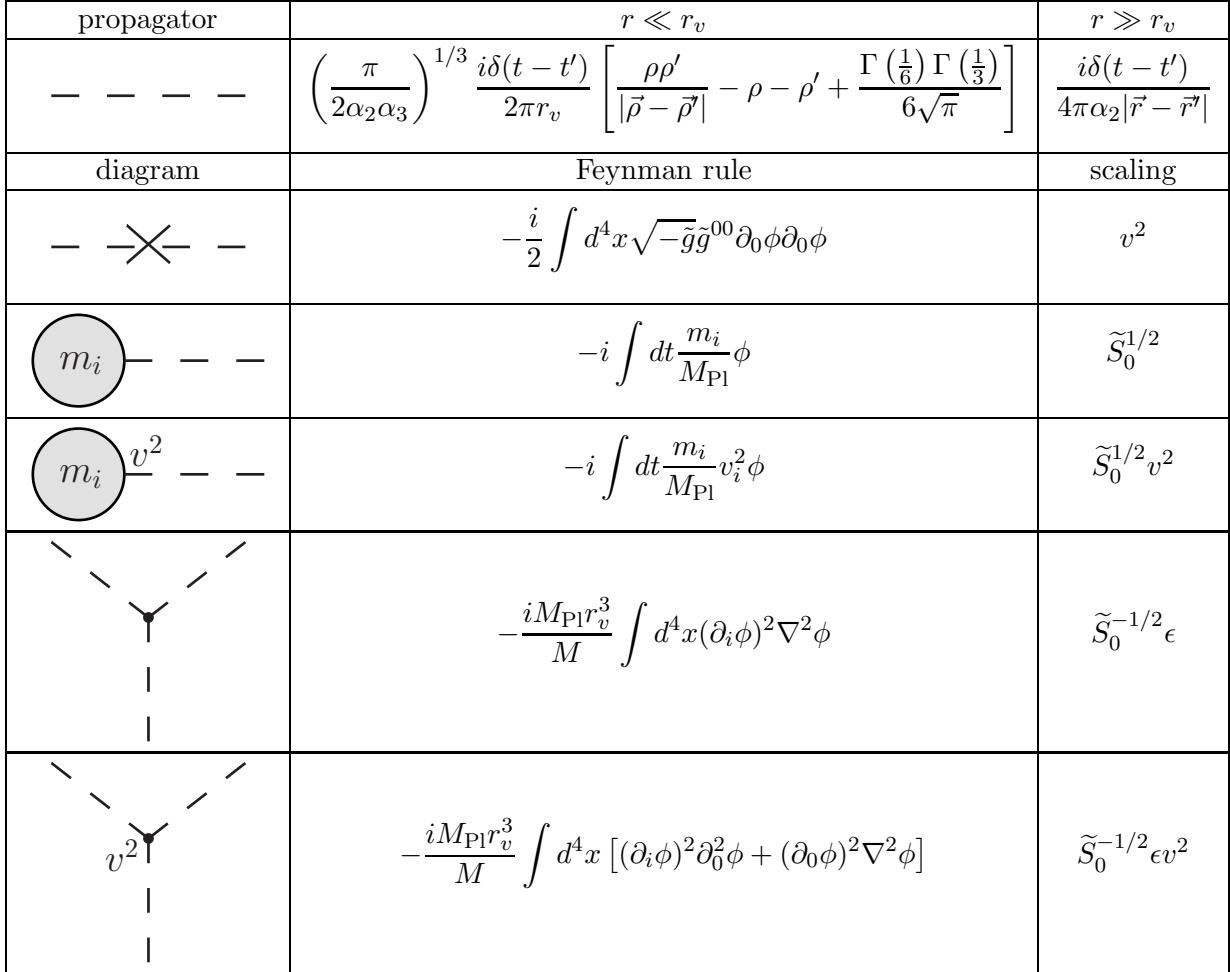 propagator r ≪ r_v r ≫ r_v
(π/(2α₂α₃))^{1/3} iδ(t − t′)/(2πr_v) [ρρ′/|ρ⃗ − ρ⃗′| − ρ − ρ′ + Γ(1/6)Γ(1/3)/(6√π)] iδ(t − t′)/(4πα₂|r⃗ − r⃗′|)
diagram Feynman rule scaling
−(i/2) ∫ d⁴x √(−g̃) g̃⁰⁰ ∂₀φ∂₀φ v²
m_i −i ∫ dt (m_i/M_Pl) φ S̃₀^{1/2}
m_i v² −i ∫ dt (m_i/M_Pl) v_i² φ S̃₀^{1/2} v²
−(iM_Pl r_v³/M) ∫ d⁴x (∂_iφ)²∇²φ S̃₀^{−1/2} ϵ
v² −(iM_Pl r_v³/M) ∫ d⁴x [(∂_iφ)²∂₀²φ + (∂₀φ)²∇²φ] S̃₀^{−1/2} ϵv²